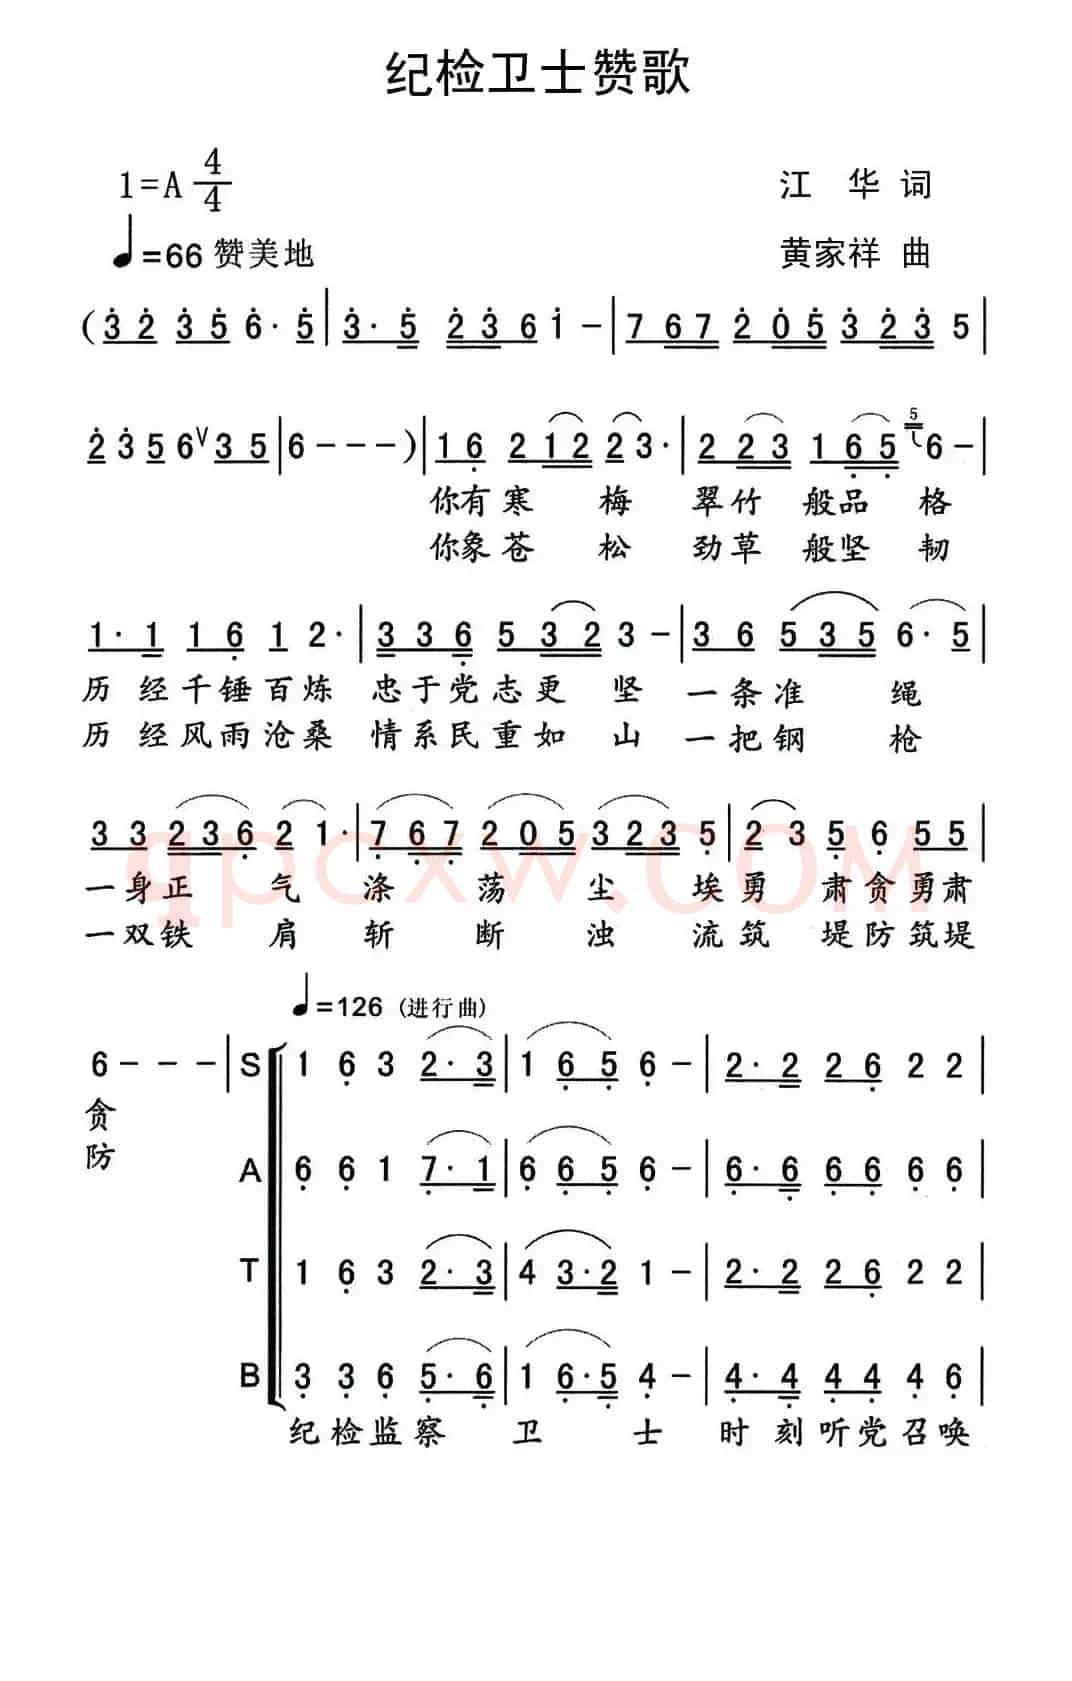 纪检卫士赞歌
1=A 4/4
江 华 词
♩=66 赞美地
黄家祥 曲
(3 2 3 5 6· 5 | 3· 5 2 3 6 1 - | 7 6 7 2 0 5 3 2 3 5 |
2 3 5 6 V 3 5 | 6 - - - ) | 1 6 2 1 2 2 3· | 2 2 3 1 6 5 5 6 - |
你有寒 梅 翠竹 般品 格
你象苍 松 劲草 般坚 韧
1· 1 1 6 1 2· | 3 3 6 5 3 2 3 - | 3 6 5 3 5 6· 5 |
历 经千锤百炼 忠于党志更 坚 一条准 绳
历 经风雨沧桑 情系民重如 山 一把钢 枪
3 3 2 3 6 2 1· | 7 6 7 2 0 5 3 2 3 5 | 2 3 5 6 5 5 |
一身正 气 涤 荡 尘 埃勇 肃贪勇肃
一双铁 肩 斩 断 浊 流筑 堤防筑堤
♩=126 (进行曲)
6 - - - | S 1 6 3 2· 3 | 1 6 5 6 - | 2· 2 2 6 2 2 |
贪
防
A 6 6 1 7· 1 | 6 6 5 6 - | 6· 6 6 6 6 6 |
T 1 6 3 2· 3 | 4 3· 2 1 - | 2· 2 2 6 2 2 |
B 3 3 6 5· 6 | 1 6· 5 4 - | 4· 4 4 4 4 6 |
纪检监察 卫 士 时 刻听党召唤
qpcxw.COM